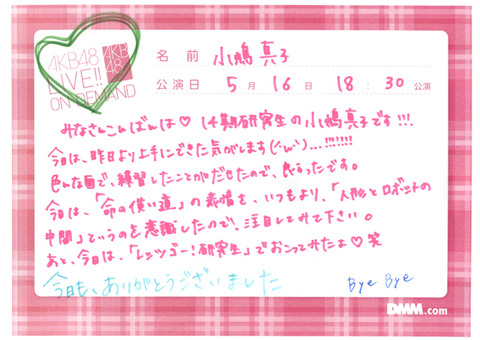 AKB48
LIVE!!
ON DEMAND
AKB
48
名前 小嶋真子
公演日 5月16日 18:30公演
みなさんこんばんは♡ 14期研究生の小嶋真子です!!!
今日は、昨日より上手にできた気がします(く'ω')...!!!!!!!
色んな面で、練習したことがだせたので、良かったです。
今日は、「命の使い道」の表情を、いつもより、「人形とロボットの
中間」というのを意識したので、注目してみて下さい。
あと、今日は、「レッツゴー!研究生」でおこってみたよ♡笑
今日も、ありがとうございました
Bye Bye
DMM.com